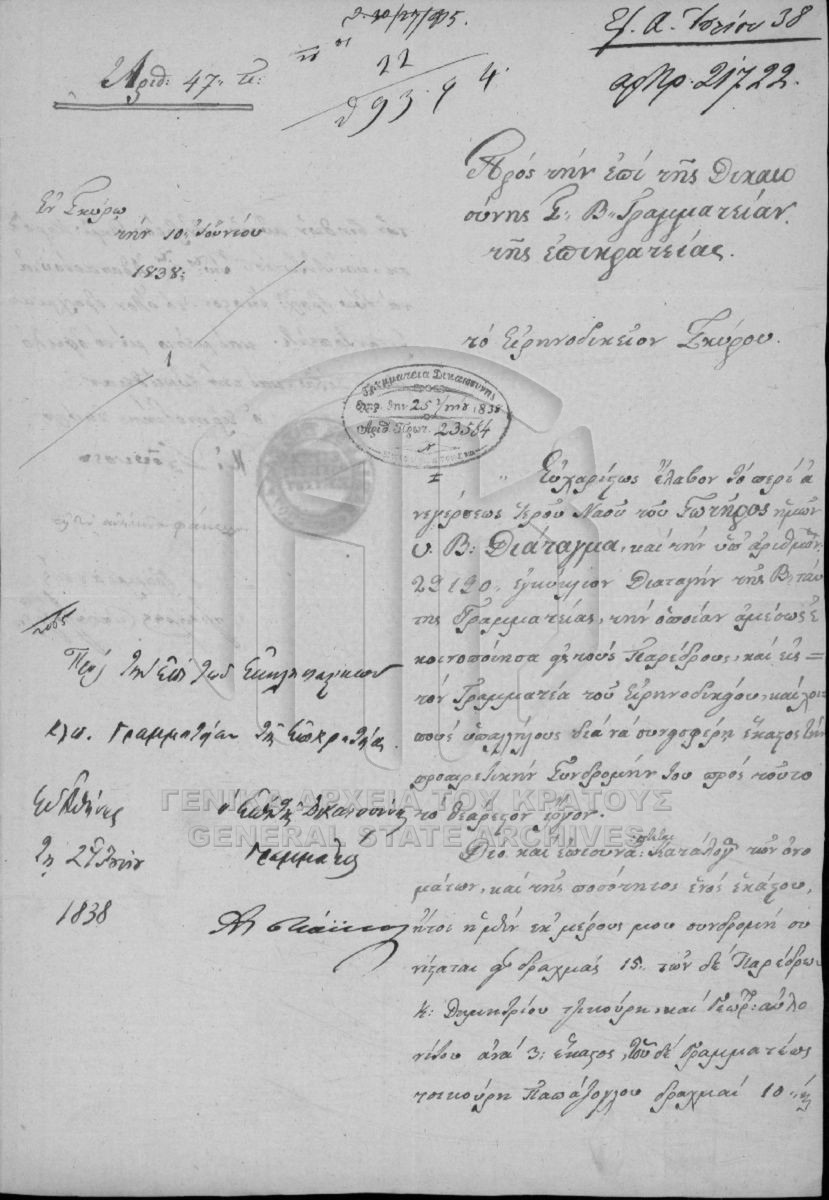 Αριθ: 47
22
αρ Πρ. 21722.
Ἐν Σκύρῳ
τὴν 10 Ἰουνίου
1838:
Πρὸς τὴν ἐπὶ τῆς Δικαιο
σύνης Γραμματείαν
τῆς ἐπικρατείας.
τὸ Εἰρηνοδικεῖον Σκύρου.
Γραμματεία Δικαιοσύνης
25 1838
Ἀριθ. Πρωτ. 23554
Εὐχαρίστως ἔλαβον τὸ περὶ ἀ
νεγέρσεως Ἱεροῦ Ναοῦ τοῦ Σωτῆρος ἡμῶν
Β: Διάταγμα, καὶ τὴν ὑπ' ἀριθμὸν
29190 ἐγκύκλιον Διαταγὴν τῆς Β: ταύ
της Γραμματείας, τὴν ὁποίαν ἀμέσως ἐ
κοινοποίησα εἰς τοὺς Παρέδρους, καὶ εἰς
τὸν Γραμματέα τοῦ Εἰρηνοδικείου, καὶ λοι
ποὺς ὑπαλλήλους διὰ νὰ συνεισφέρῃ ἕκαστος τὴν
προαιρετικὴν Συνδρομήν του πρὸς τοῦτο
τὸ θεάρεστον ἔργον.
Διὸ καὶ ἐπισυνάπτεται Κατάλογος τῶν ὀνο
μάτων, καὶ τῆς ποσότητος ἑνὸς ἑκάστου,
ἤτοι ἡ μὲν ἐκ μέρους μου συνδρομὴ συ
νίσταται εἰς δραχμάς 15. τῶν δὲ Παρέδρων
Κ: Δημητρίου καὶ Γεωρ:
ἀνὰ 3: ἕκαστος, τοῦ δὲ Γραμματέως
Παπάζογλου δραχμαὶ 10
2085
Πρὸς τὴν ἐπὶ τῶν Ἐκκλησιαστικῶν
κλπ. Γραμματείαν τῆς Ἐπικρατείας.
Ἐν Ἀθήναις
τῇ 27 Ἰουνίου
1838
ὁ ἐπὶ τῆς Δικαιοσύνης
Γραμματεύς
ΓΕΝΙΚΑ ΑΡΧΕΙΑ ΤΟΥ ΚΡΑΤΟΥΣ
GENERAL STATE ARCHIVES